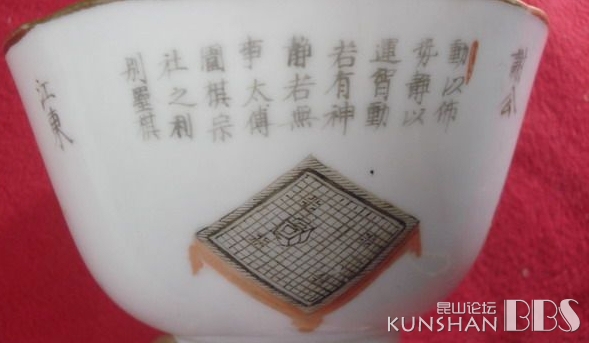 動以佈
势静以
運智動
若有神
静若無
事太傅
圍棋宗
社之利
別墅棋
江東
昆山论坛
KUNSHAN BBS